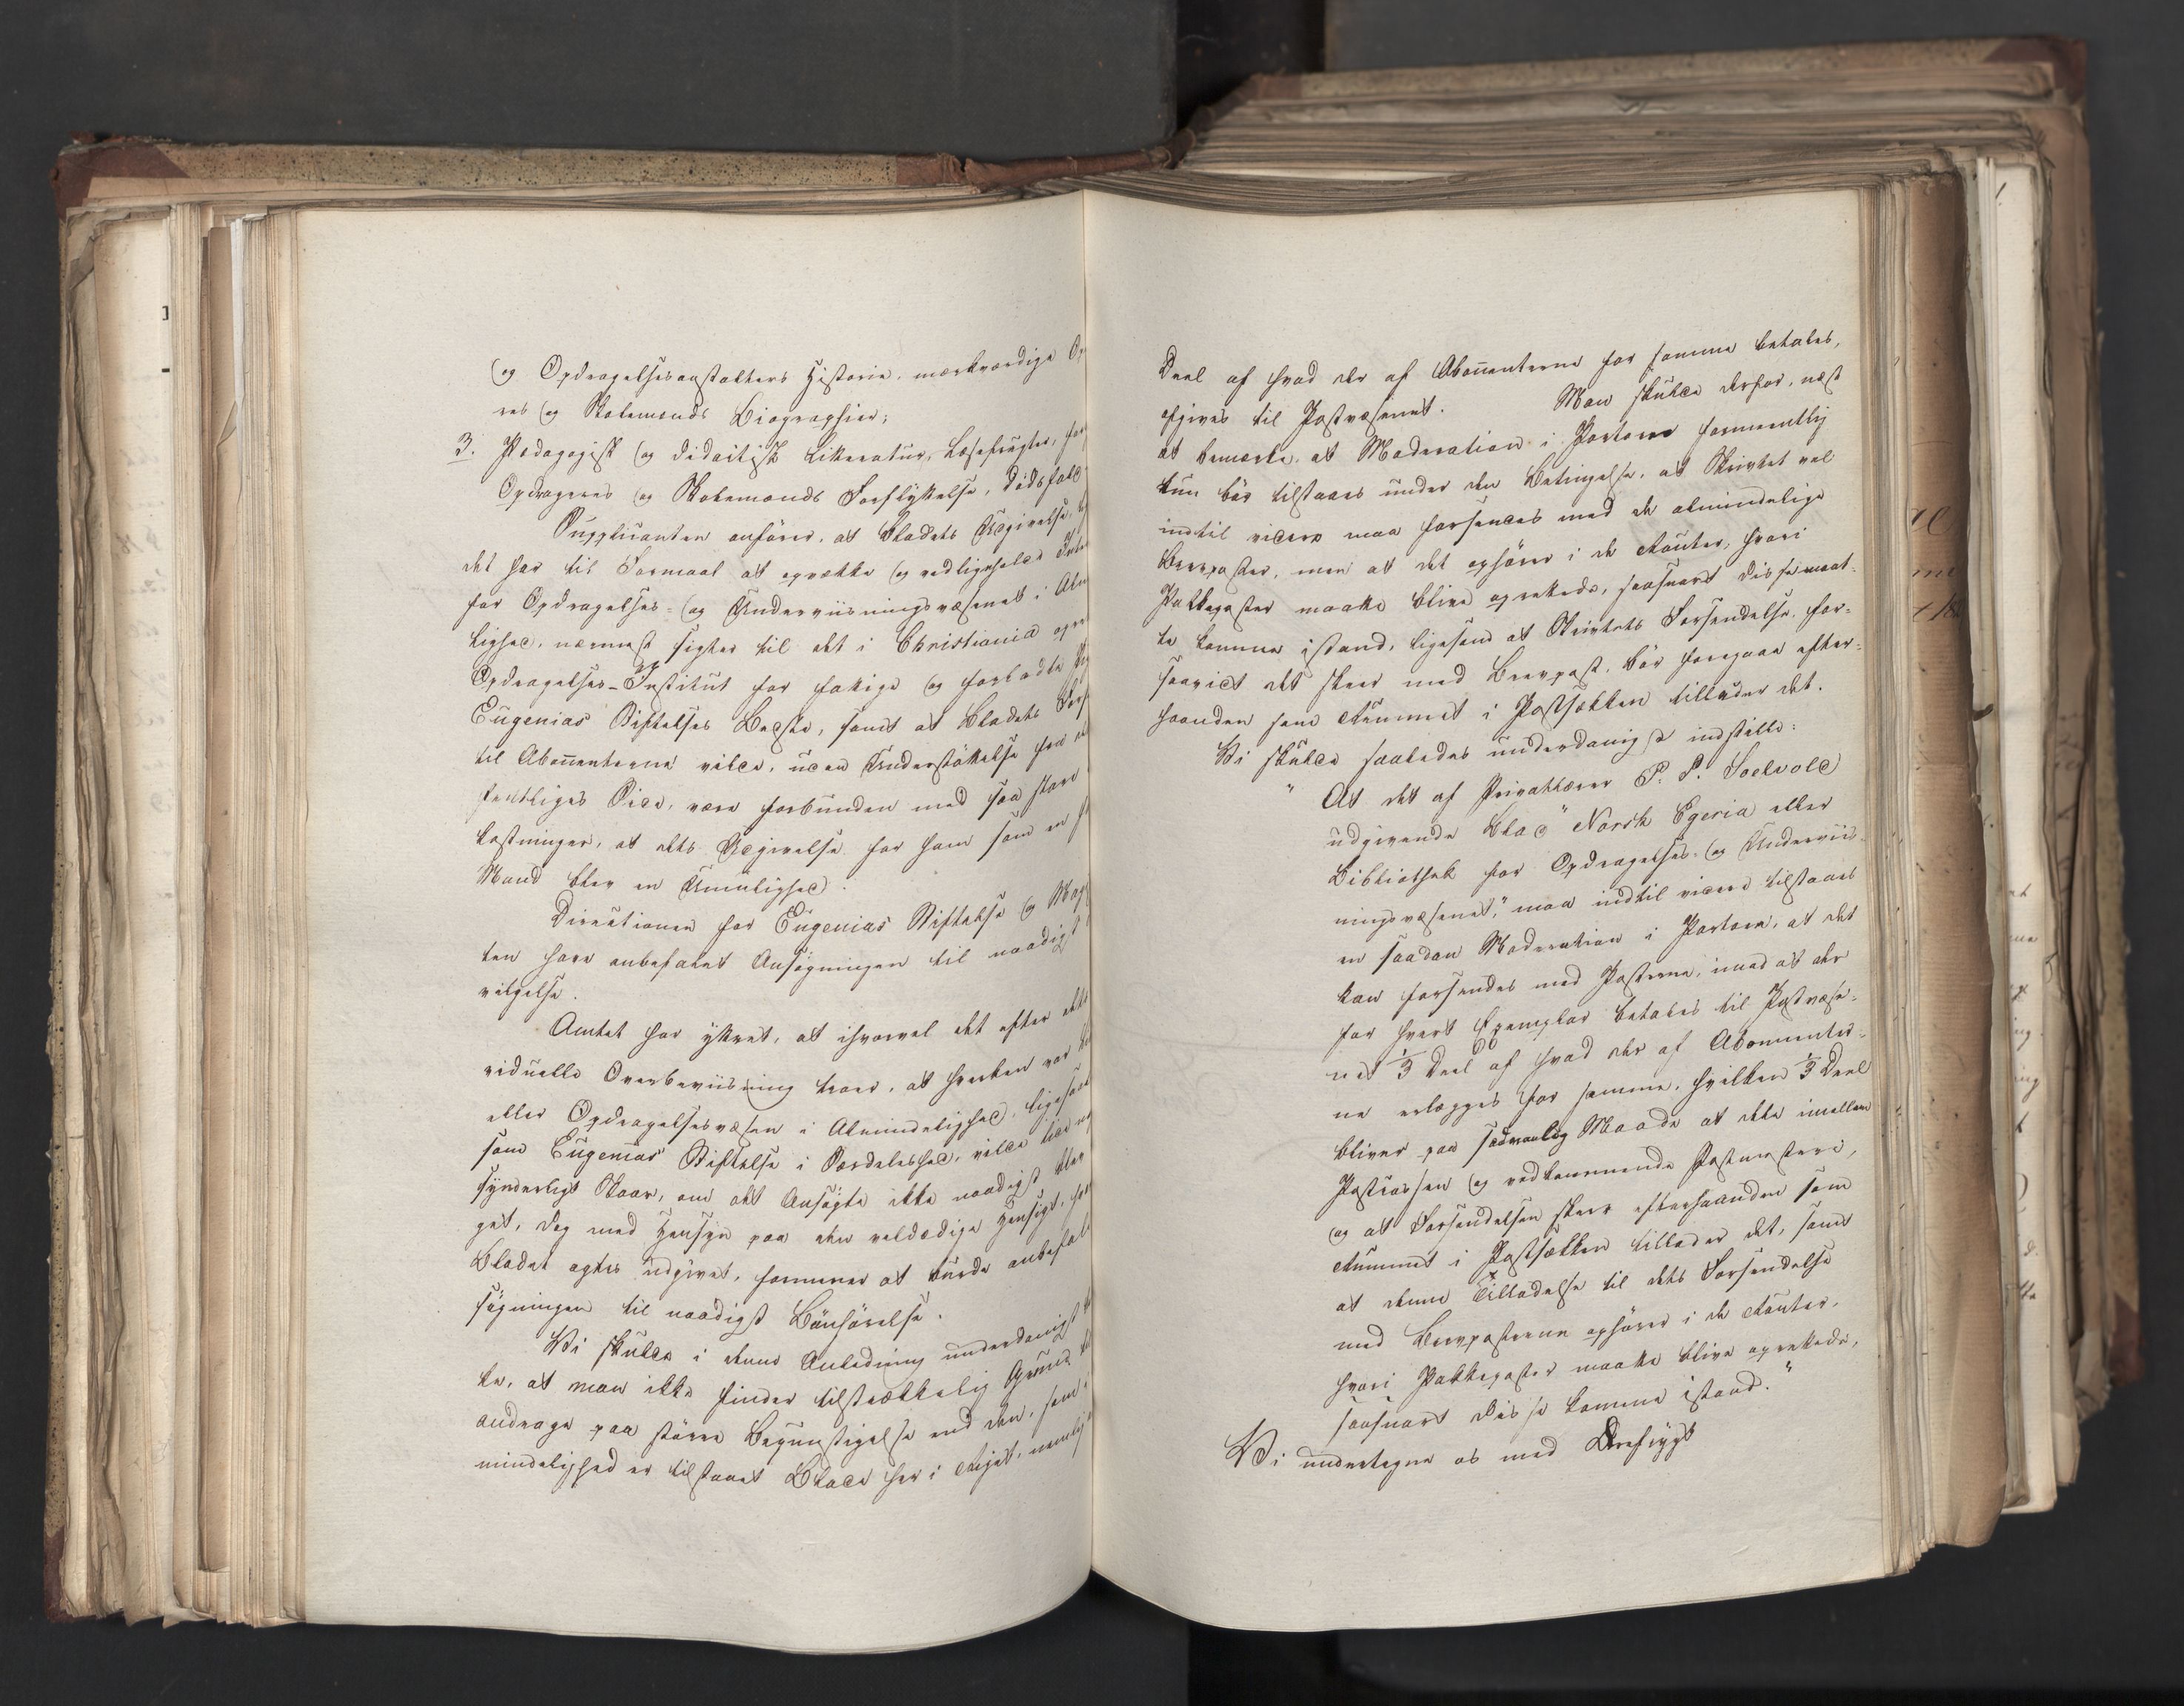 og Opdragelsesanstalters Historie, mærkværdige Op
res og Skolemænds Biographier;
3. Pædagogisk og didactisk Literatur, Læsefrugter, for
Opdrageres og Skolemænds Forflyttelse, Dödsfald
Supplicanten anförer, at Bladets Udgivelse,
det har til Formaal at opvække og vedligeholde Inte
for Opdragelses- og Underviisningsvæsenet i Alm
lighed, nærmest sigter til det i Christiania opre
Opdragelses-Institut for fattige og forladte Pig
Eugenias Stiftelses Bedste, samt at Bladets Fors
til Abonnenterne vilde, uden Understöttelse fra
fentliges Side, være forbunden med saa store
kostninger, at dets Udgivelse for ham som en
Mand blev en Umulighed.
Directionen for Eugenias Stiftelse og Mag
ten have anbefalet Ansögningen til naadigst
vilgelse.
Amtet har yttret, at ihvorvel det efter dets
viduelle Overbeviisning troer, at hverken vor
eller Opdragelsesvæsen i Almindelighed, ligesaa
som Eugenias Stiftelse i Særdeleshed, vilde lide no
synderligt Skaar, om det Ansögte ikke naadigst blev
get, dog med Hensyn paa den veldædige Hensigt, hvor
Bladet agtes udgivet, formener at burde anbefale
sögningen til naadigst Bönhörelse.
Vi skulde i denne Anledning underdanigst
ke, at man ikke finder tilstrækkelig Grund til
andrage paa större Begunstigelse end den, som
mindelighed er tilstaaet Blade her i Riget, nemlig
Deel af hvad der af Abonnenterne for samme betales,
afgives til Postvæsenet. Man skulde derfor, næst
at bemærke, at Moderation i Portoen formeentlig
kun bör tilstaaes under den Betingelse, at Skrivtet vel
indtil videre maa forsendes med de almindelige
Brevposter, men at det ophörer i de Router, hvori
Pakkeposter maatte blive oprettede, saasnart disse maat-
te komme istand, ligesom at Skrivtets Forsendelse, for-
saavidt det skeer med Brevpost, bör foregaae efter-
haanden som Rummet i Postsækken tillader det.
Vi skulde saaledes underdanigst indstille:
" At det af Privatlærer P. P. Soelvold
udgivende Blad "Norsk Egeria eller
Bibliothek for Opdragelses- og Underviis-
ningsvæsenet," maa indtil videre tilstaaes
en saadan Moderation i Portoen, at det
kan forsendes med Posterne, imod at der
for hvert Exemplar betales til Postvæse-
net 1/3 Deel af hvad der af Abonnenter-
ne erlægges for samme, hvilken 1/3 Deel
bliver paa sædvanlig Maade at dele imellem
Postcassen og vedkommende Postmestere,
og at Forsendelsen skeer efterhaanden som
Rummet i Postsækken tillader det, samt
at denne Tilladelse til dets Forsendelse
med Brevposterne ophörer i de Router,
hvori Pakkeposter maatte blive oprettede,
saasnart disse komme istand."
Vi undertegne os med Ærefrygt